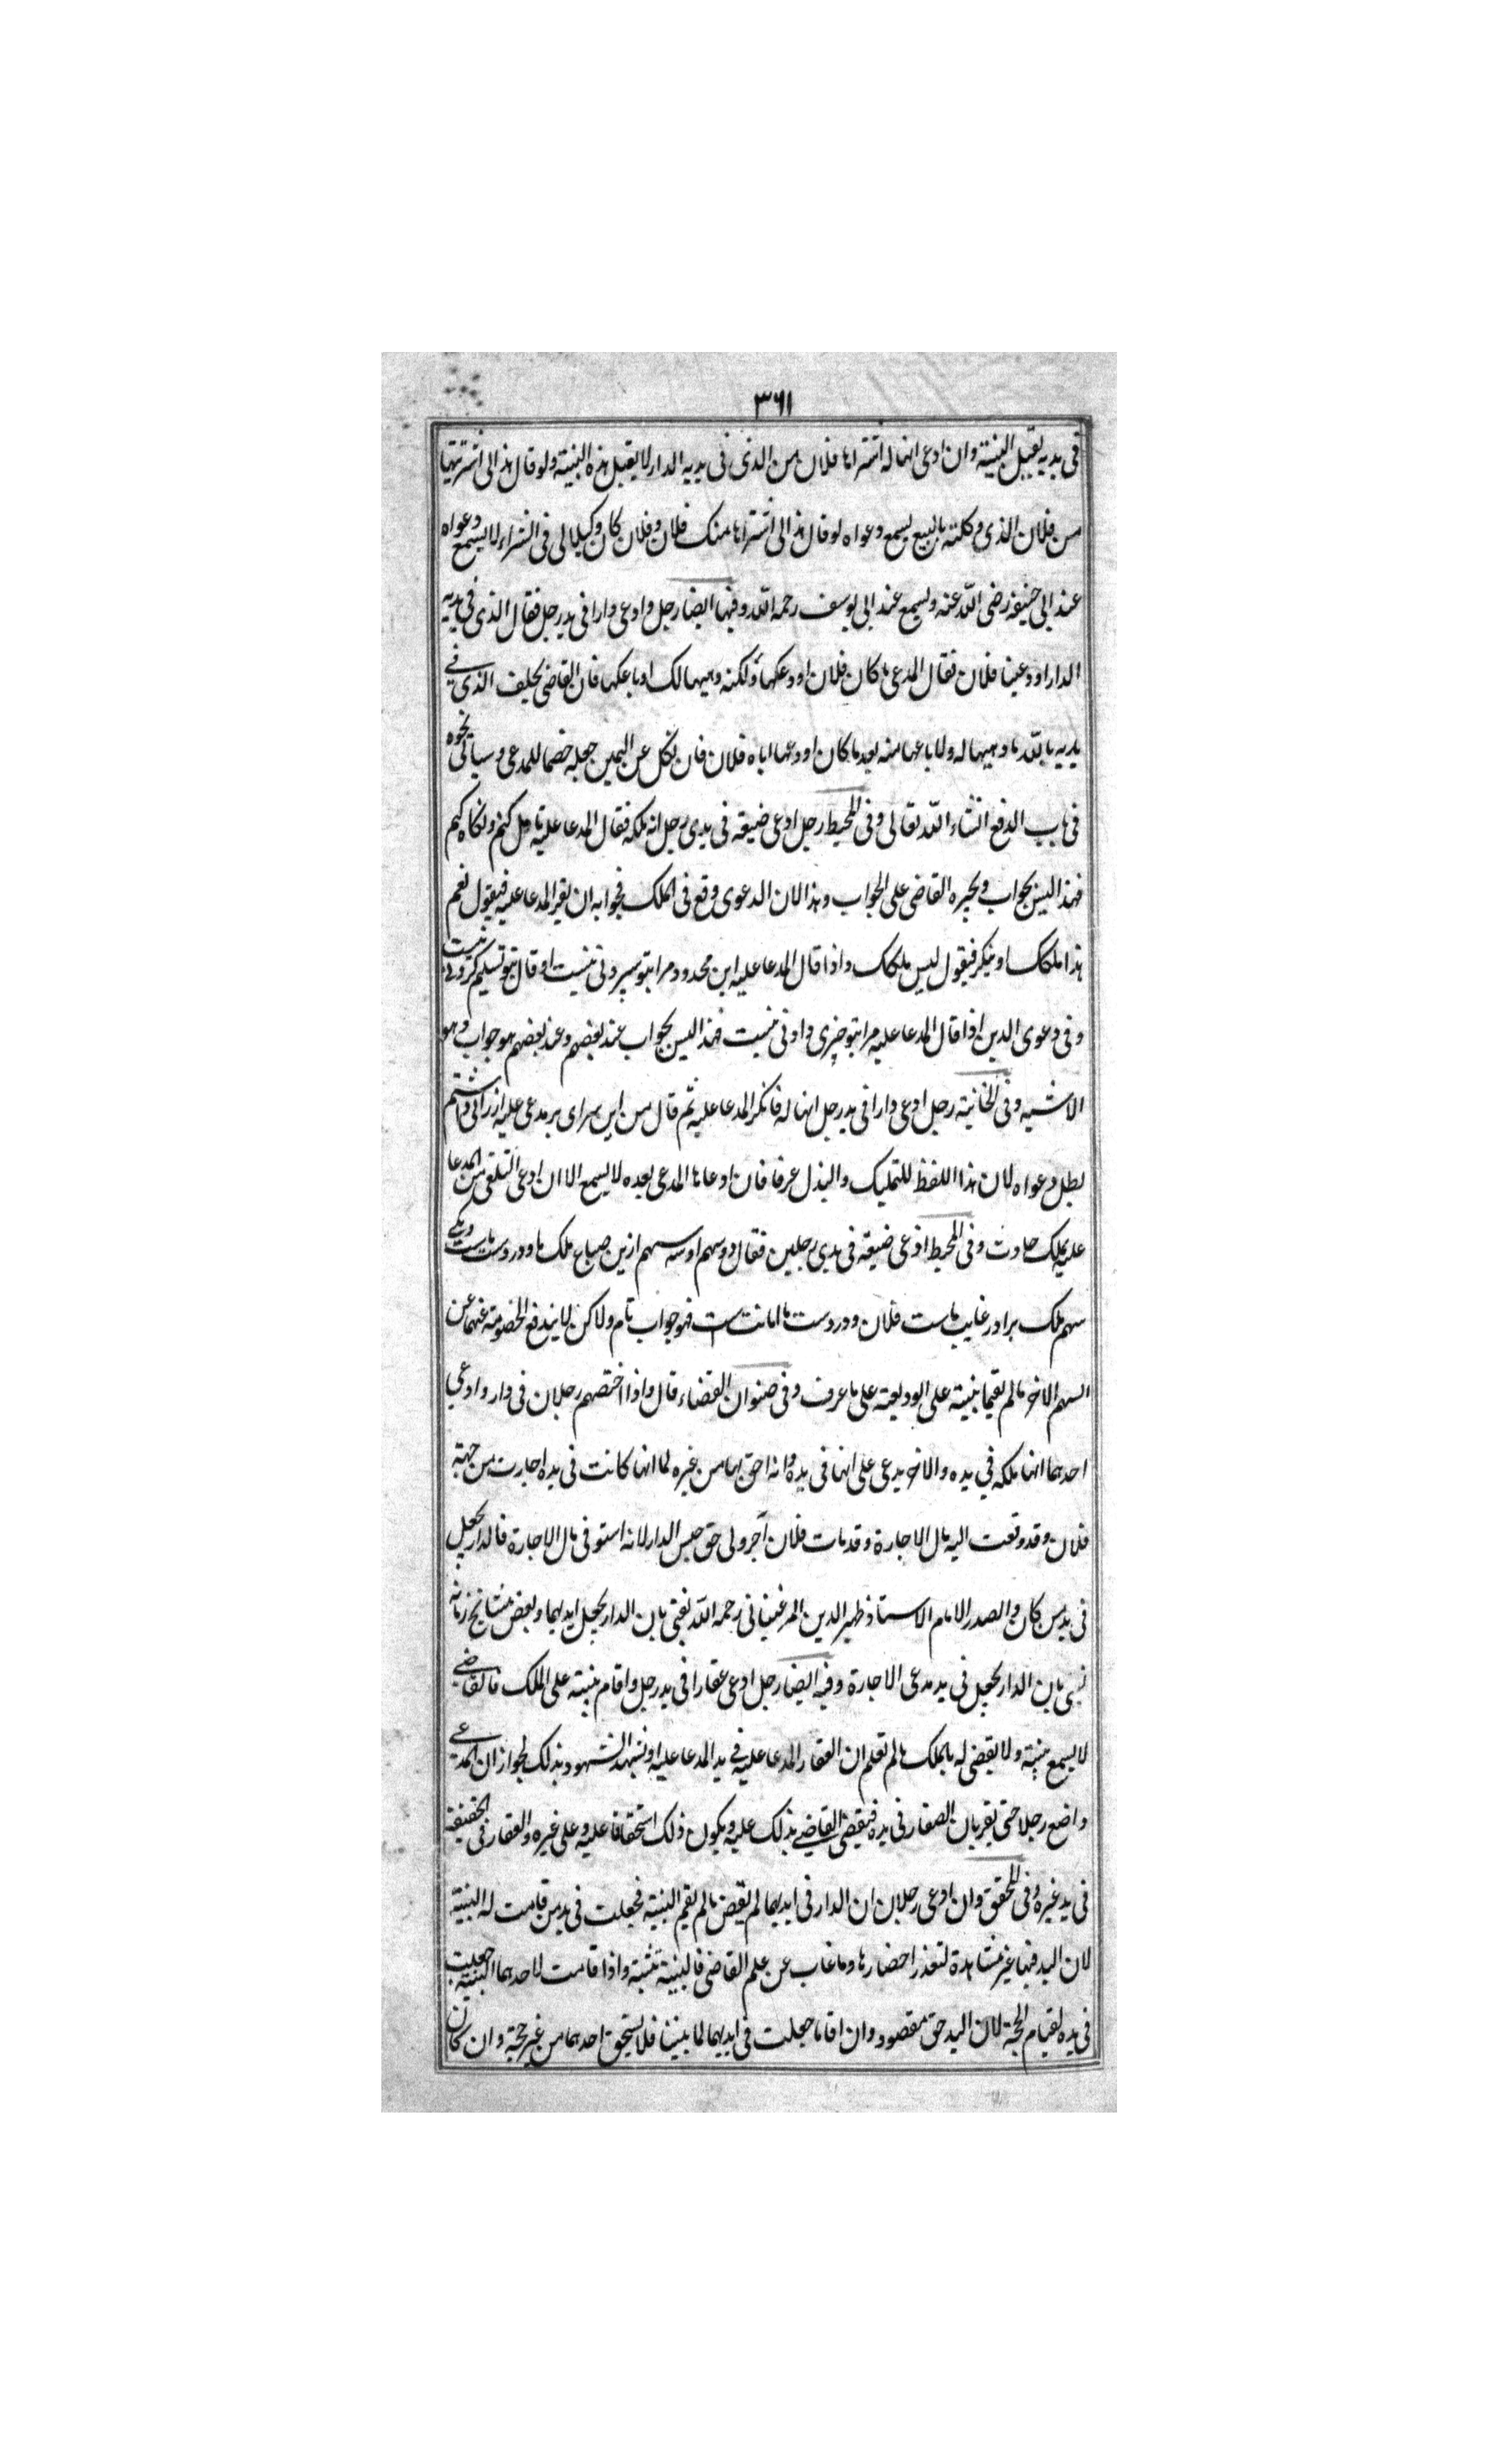 ٣٦١
فى يديه يقبل البينة وان ادعى انها له اشتراها فلان من الذى فى يديه الدار لا يقبل هذه البينة ولو قال هذا لى اشتريتها
من فلان الذى وكلته بالبيع يسمع دعواه لو قال هذا لى اشتراها منك فلان وفلان كان وكيلا لى فى الشراء لا يسمع دعواه
عند ابى حنيفة رضى الله عنه ويسمع عند ابى يوسف رحمه الله وفيها ايضا رجل وادعى دارا فى يد رجل فقال الذى فى يديه
الدار اودعينا فلان فقال المدعى ما كان فلان اودعكها ولكنه وهبها لك او باعكها فان القاضى يحلف الذى فى
يديه بالله ما وهبها له ولا باعها منه بعد ما كان اودعها اياه فلان فان نكل عن اليمين جعله خصما للمدعى وسيأتى نحوه
فى باب الدفع انشاء الله تعالى وفى المحيط رجل ادعى ضيعة فى يدى رجل انه ملكه فقال المدعا عليه تامل كنم ونكاه كنم
فهذا ليس بجواب ويجبره القاضى على الجواب وهذا لان الدعوى وقع فى الملك فجوابه ان يقر المدعا عليه فيقول نعم
هذا ملكك او ينكر فيقول ليس ملكك واذا قال المدعا عليه اين محدود مرا بتو سپردنى نيست او قال بتو تسليم كردنى نيست
وفى دعوى الدين اذا قال المدعا عليه مرا بتو چيزى دادنى نيست فهذا ليس بجواب عند بعضهم وعند بعضهم هو جواب وهو
الاشبه وفى الخانية رجل ادعى دارا فى يد رجل انها له فانكر المدعا عليه ثم قال من اين سراى بر مدعى عليه ارزانى داشتم
بطل دعواه لان هذا اللفظ للتمليك والبذل عرفا فان ادعاها المدعى بعده لا يسمع الا ان ادعى التلقى من المدعا
عليه بملك حادث وفى المحيط ادعى ضيعة فى يدى رجلين فقال دو سهم او سه سهم ازين ضياع ملك ما ودر دست ماست ويكى
سهم ملك برادر غايب ماست فلان ودر دست ما امانت ست فهو جواب تام ولاكن لا يندفع الخصومة عنهما عن
السهم الاخر ما لم يقيما بينة على الوديعة على ما عرف وفى صنوان القضاء قال واذا اختصم رجلان فى دار وادعى
احدهما انها ملكه فى يده والاخر يدعى على انها فى يده وانه احق بها من غيره لما انها كانت فى يده اجارت من جهة
فلان وقد وقعت اليه مال الاجارة وقد مات فلان آجر ولى حق حبس الدار لانه استوفى مال الاجارة فالدار يجعل
فى يد من كان والصدر الامام الاستاد ظهير الدين المرغينانى رحمه الله يفتى بان الدار يجعل ايديهما وبعض مشايخ زمانه
بان الدار يجعل فى يد مدعى الاجارة وفيه ايضا رجل ادعى عقارا فى يد رجل واقام بينة على الملك فالقاضى
لا يسمع بينته ولا يقضى له بالملك ما لم تعلم ان العقار المدعا عليه فى يد المدعا عليه او يشهد الشهود بذلك لجواز ان المدعى
واضع رجلا حتى يقر بان الصقار فى يده فيقضى القاضى بذلك عليه ويكون ذلك استحقاقا عليه وعلى غيره والعقار فى الحقيقة
فى يد غيره وفى المحقق وان ادعى رجلان ان الدار فى ايديهما لم يقض ما لم يقم البينة فجعلت فى يد من قامت له البينة
لان اليد فيها غير مشاهدة لتعذر احضارها وما غاب عن علم القاضى فالبينة تثبته واذا قامت لاحدهما البينة جعلت
فى يده لقيام الحجة لان اليد حق مقصود وان اقاما جعلت فى ايديهما لما بينا فلا يستحق احدهما من غير حجة وان كان